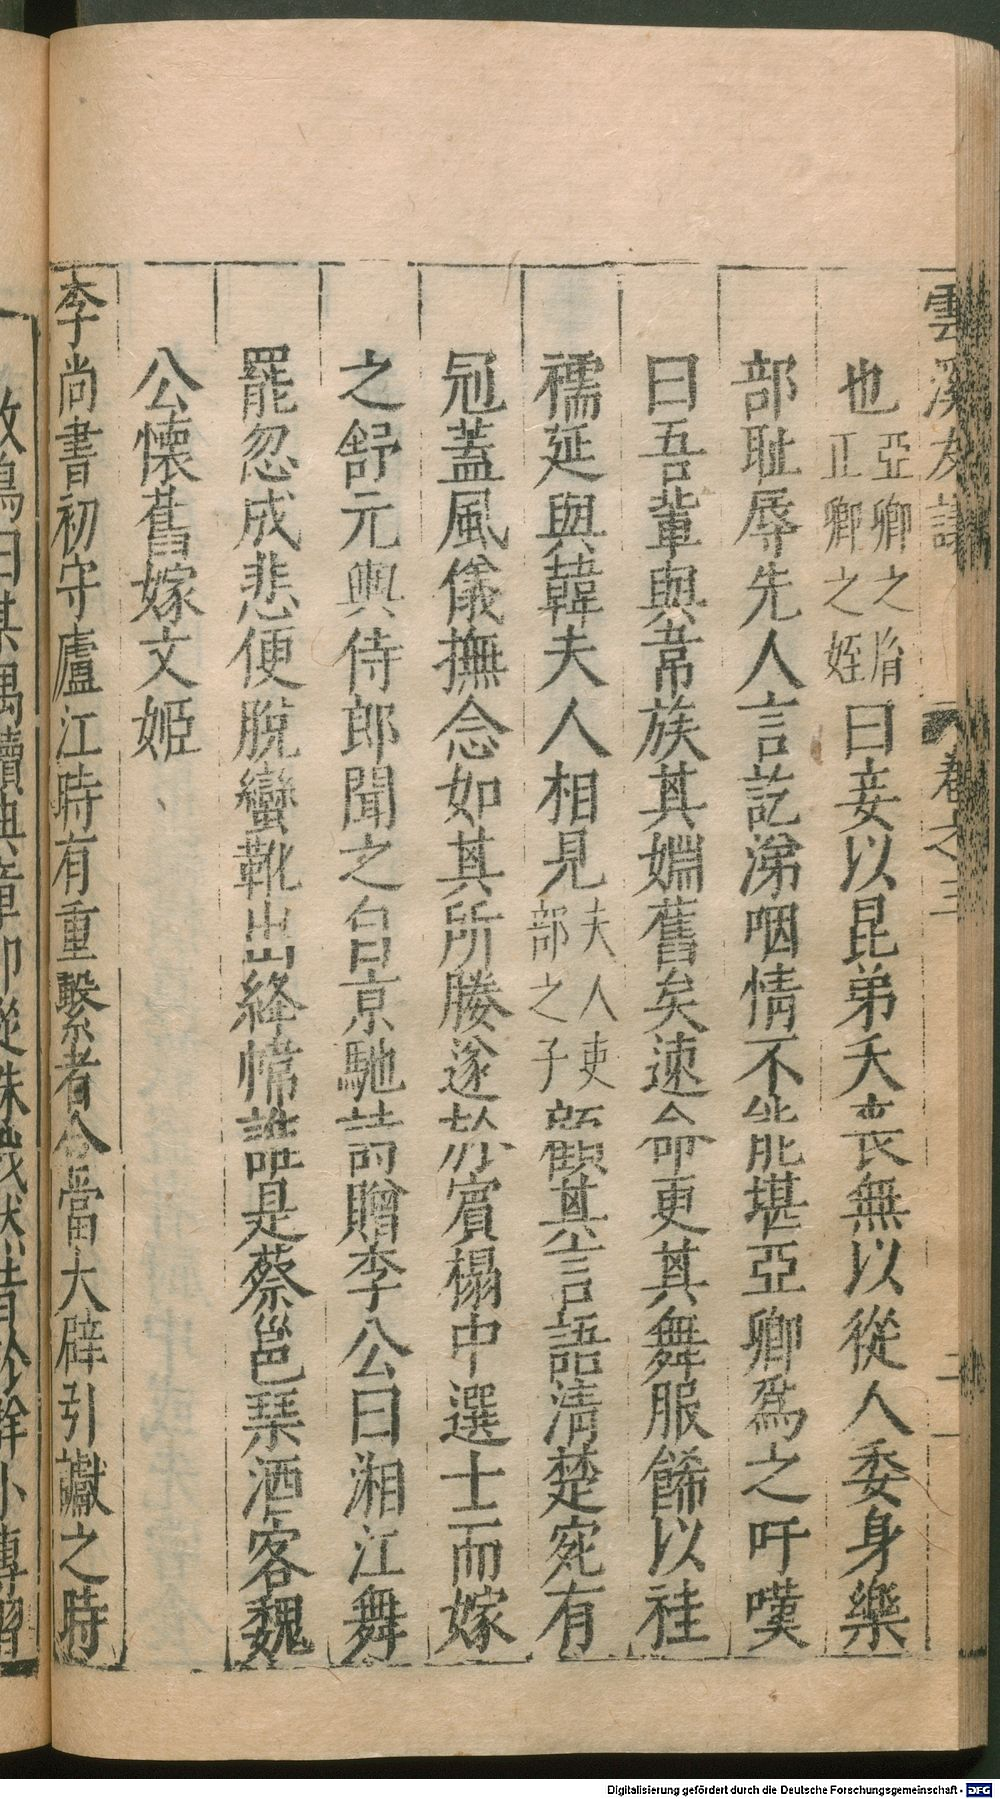 雲溪友議 卷之三 二
也亞卿之胄正卿之姪曰妾以昆弟夭喪無以從人委身樂
部耻辱先人言訖涕咽情不能堪亞卿爲之吁嘆
曰吾輩與韋族其婣舊矣速命更其舞服餙以袿
襦延與韓夫人相見夫人吏部之子顧其言語清楚宛有
冠蓋風儀撫念如其所媵遂於賓榻中選士而嫁
之舒元輿侍郎聞之自京馳詩贈李公曰湘江舞
罷忽成悲便脫蠻靴出絳幃誰是蔡邕琹酒客魏
公懐舊嫁文姬
李尚書初守廬江時有重繫者合當大辟引讞之時
Digitalisierung gefördert durch die Deutsche Forschungsgemeinschaft - DFG